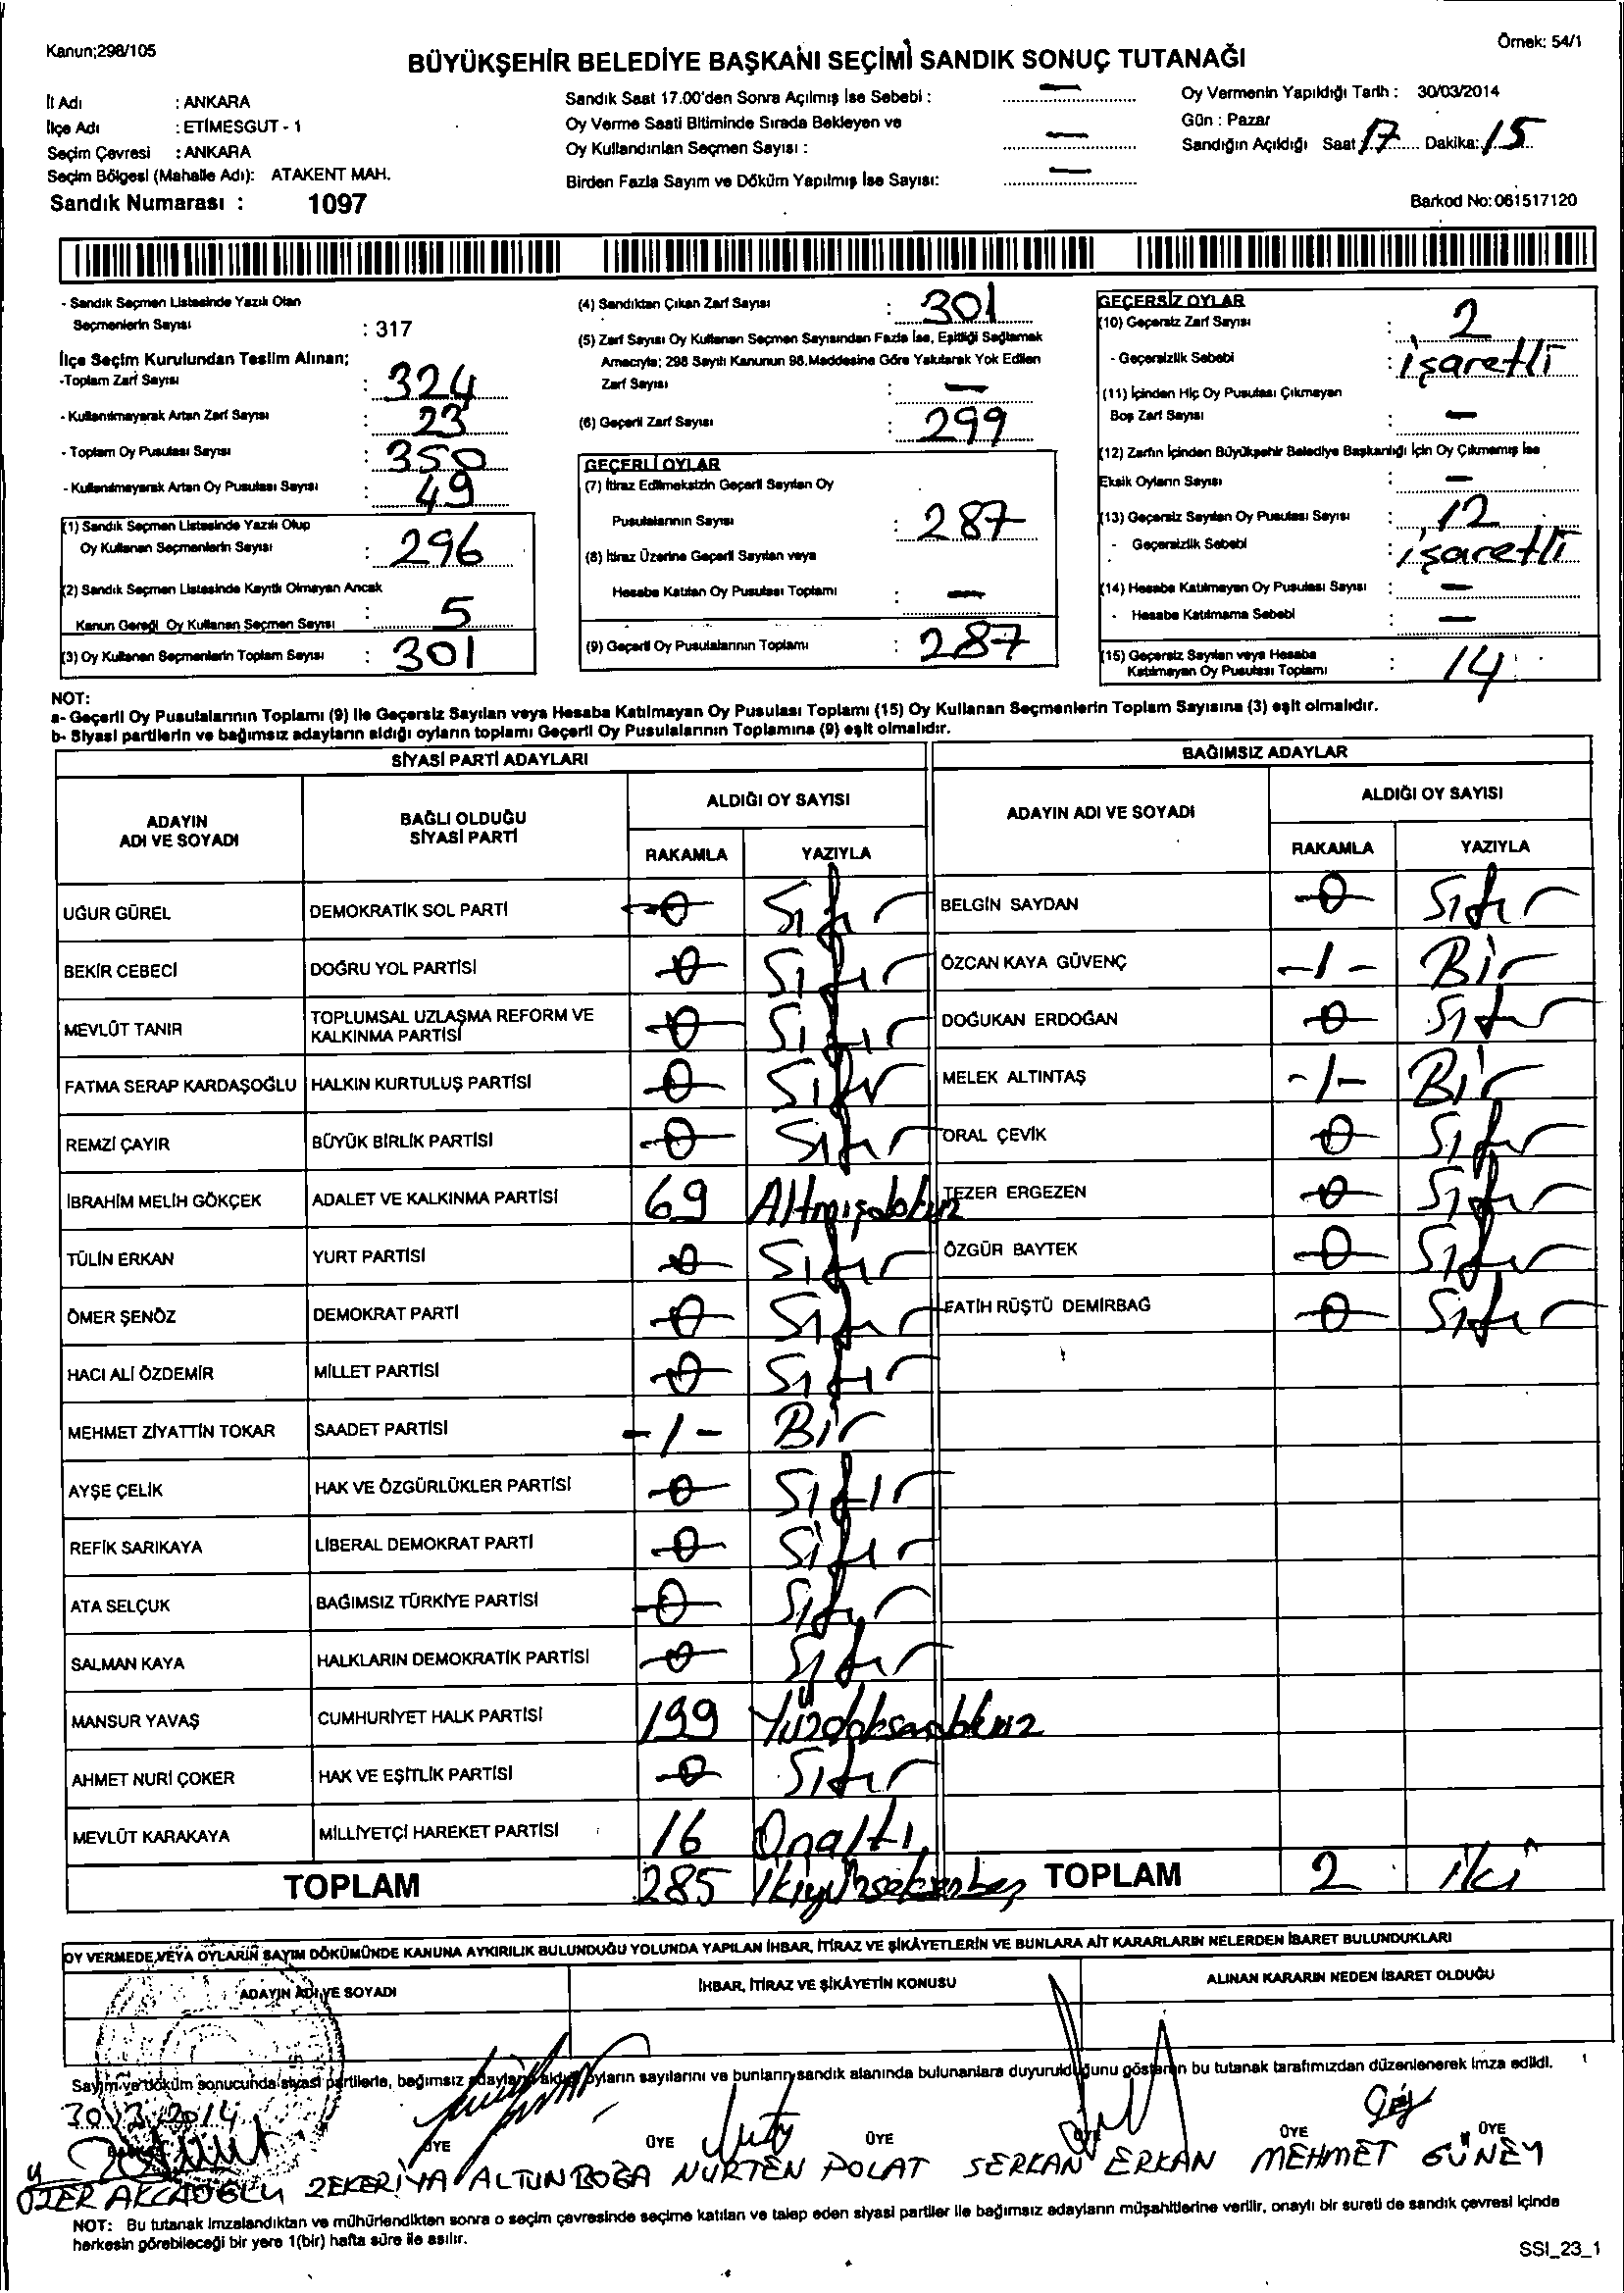 Kanun;298/105
Örnek: 54/1
BÜYÜKŞEHİR BELEDİYE BAŞKANI SEÇİMİ SANDIK SONUÇ TUTANAĞI
İl Adı : ANKARA
İlçe Adı : ETİMESGUT - 1
Seçim Çevresi : ANKARA
Seçim Bölgesi (Mahalle Adı): ATAKENT MAH.
Sandık Numarası : 1097
Sandık Saat 17.00'den Sonra Açılmış İse Sebebi : —
Oy Verme Saati Bitiminde Sırada Bekleyen ve
Oy Kullandırılan Seçmen Sayısı : —
Birden Fazla Sayım ve Döküm Yapılmış İse Sayısı: —
Oy Vermenin Yapıldığı Tarih : 30/03/2014
Gün : Pazar
Sandığın Açıldığı Saat 17 Dakika: 15
Barkod No:061517120
- Sandık Seçmen Listesinde Yazılı Olan
Seçmenlerin Sayısı : 317
İlçe Seçim Kurulundan Teslim Alınan;
-Toplam Zarf Sayısı : 324
- Kullanılmayarak Artan Zarf Sayısı : 23
- Toplam Oy Pusulası Sayısı : 350
- Kullanılmayarak Artan Oy Pusulası Sayısı : 49
(1) Sandık Seçmen Listesinde Yazılı Olup
Oy Kullanan Seçmenlerin Sayısı : 296
(2) Sandık Seçmen Listesinde Kayıtlı Olmayan Ancak
Kanun Gereği Oy Kullanan Seçmen Sayısı : 5
(3) Oy Kullanan Seçmenlerin Toplam Sayısı : 301
(4) Sandıktan Çıkan Zarf Sayısı : 301
(5) Zarf Sayısı Oy Kullanan Seçmen Sayısından Fazla İse, Eşitliği Sağlamak
Amacıyla; 298 Sayılı Kanunun 98.Maddesine Göre Yakılarak Yok Edilen
Zarf Sayısı : —
(6) Geçerli Zarf Sayısı : 299
GEÇERLİ OYLAR
(7) İtiraz Edilmeksizin Geçerli Sayılan Oy
Pusulalarının Sayısı : 287
(8) İtiraz Üzerine Geçerli Sayılan veya
Hesaba Katılan Oy Pusulası Toplamı : —
(9) Geçerli Oy Pusulalarının Toplamı : 287
GEÇERSİZ OYLAR
(10) Geçersiz Zarf Sayısı : 2
- Geçersizlik Sebebi : işaretli
(11) İçinden Hiç Oy Pusulası Çıkmayan
Boş Zarf Sayısı : —
(12) Zarfın İçinden Büyükşehir Belediye Başkanlığı İçin Oy Çıkmamış İse
Eksik Oyların Sayısı : —
(13) Geçersiz Sayılan Oy Pusulası Sayısı : 12
- Geçersizlik Sebebi : işaretli
(14) Hesaba Katılmayan Oy Pusulası Sayısı : —
- Hesaba Katılmama Sebebi : —
(15) Geçersiz Sayılan veya Hesaba
Katılmayan Oy Pusulası Toplamı : 14
NOT:
a- Geçerli Oy Pusulalarının Toplamı (9) ile Geçersiz Sayılan veya Hesaba Katılmayan Oy Pusulası Toplamı (15) Oy Kullanan Seçmenlerin Toplam Sayısına (3) eşit olmalıdır.
b- Siyasi partilerin ve bağımsız adayların aldığı oyların toplamı Geçerli Oy Pusulalarının Toplamına (9) eşit olmalıdır.
SİYASİ PARTİ ADAYLARI
ADAYIN ADI VE SOYADI
BAĞLI OLDUĞU SİYASİ PARTİ
ALDIĞI OY SAYISI
RAKAMLA YAZIYLA
UĞUR GÜREL DEMOKRATİK SOL PARTİ 0 Sıfır
BEKİR CEBECİ DOĞRU YOL PARTİSİ 0 Sıfır
MEVLÜT TANIR TOPLUMSAL UZLAŞMA REFORM VE KALKINMA PARTİSİ 0 Sıfır
FATMA SERAP KARDAŞOĞLU HALKIN KURTULUŞ PARTİSİ 0 Sıfır
REMZİ ÇAYIR BÜYÜK BİRLİK PARTİSİ 0 Sıfır
İBRAHİM MELİH GÖKÇEK ADALET VE KALKINMA PARTİSİ 69 Altmışdokuz
TÜLİN ERKAN YURT PARTİSİ 0 Sıfır
ÖMER ŞENÖZ DEMOKRAT PARTİ 0 Sıfır
HACI ALİ ÖZDEMİR MİLLET PARTİSİ 0 Sıfır
MEHMET ZİYATTİN TOKAR SAADET PARTİSİ -1- Bir
AYŞE ÇELİK HAK VE ÖZGÜRLÜKLER PARTİSİ 0 Sıfır
REFİK SARIKAYA LİBERAL DEMOKRAT PARTİ 0 Sıfır
ATA SELÇUK BAĞIMSIZ TÜRKİYE PARTİSİ 0 Sıfır
SALMAN KAYA HALKLARIN DEMOKRATİK PARTİSİ 0 Sıfır
MANSUR YAVAŞ CUMHURİYET HALK PARTİSİ 199 Yüzdoksandokuz
AHMET NURİ ÇOKER HAK VE EŞİTLİK PARTİSİ 0 Sıfır
MEVLÜT KARAKAYA MİLLİYETÇİ HAREKET PARTİSİ 16 Onaltı
TOPLAM 285 İkiyüzseksenbeş
BAĞIMSIZ ADAYLAR
ADAYIN ADI VE SOYADI
ALDIĞI OY SAYISI
RAKAMLA YAZIYLA
BELGİN SAYDAN 0 Sıfır
ÖZCAN KAYA GÜVENÇ -1- Bir
DOĞUKAN ERDOĞAN 0 Sıfır
MELEK ALTINTAŞ -1- Bir
ORAL ÇEVİK 0 Sıfır
TEZER ERGEZEN 0 Sıfır
ÖZGÜR BAYTEK 0 Sıfır
FATİH RÜŞTÜ DEMİRBAĞ 0 Sıfır
TOPLAM 2 iki
OY VERMEDE VEYA OYLARIN SAYIM DÖKÜMÜNDE KANUNA AYKIRILIK BULUNDUĞU YOLUNDA YAPILAN İHBAR, İTİRAZ VE ŞİKÂYETLERİN VE BUNLARA AİT KARARLARIN NELERDEN İBARET BULUNDUKLARI
ADAYIN ADI VE SOYADI
İHBAR, İTİRAZ VE ŞİKÂYETİN KONUSU
ALINAN KARARIN NEDEN İBARET OLDUĞU
Sayım ve döküm sonucunda siyasi partilerle, bağımsız adayların aldığı oyların sayılarını ve bunların sandık alanında bulunanlara duyurulduğunu gösteren bu tutanak tarafımızdan düzenlenerek imza edildi.
30/3/2014
ÜYE ÜYE ÜYE ÜYE ÜYE ÜYE
ÖZER AKÇAOĞLU ZEKERİYA ALTUNBOĞA NURTEN POLAT SERKAN ERKAN MEHMET GÜNEY
NOT: Bu tutanak imzalandıktan ve mühürlendikten sonra o seçim çevresinde seçime katılan ve talep eden siyasi partiler ile bağımsız adayların müşahitlerine verilir, onaylı bir sureti de sandık çevresi içinde
herkesin görebileceği bir yere 1(bir) hafta süre ile asılır.
SSI_23_1